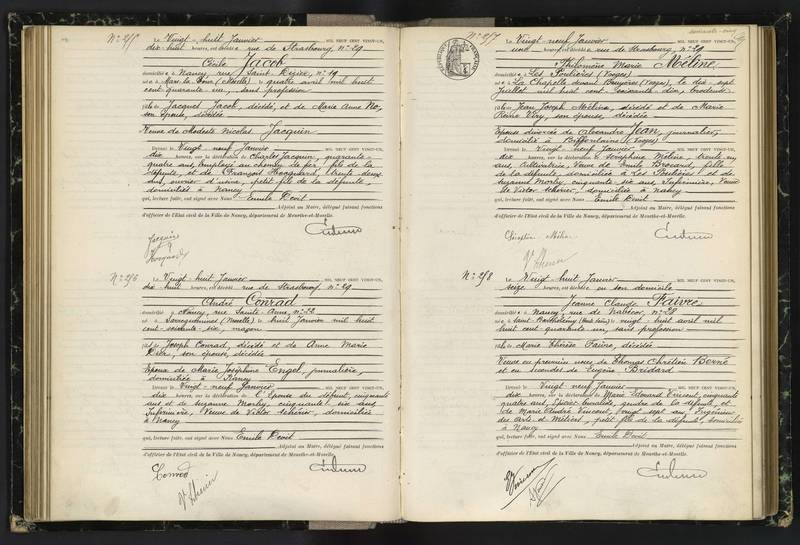 N° 215
Le Vingt-huit Janvier MIL NEUF CENT VINGT-UN,
dix-huit heures, est décédée rue de Strasbourg, n° 29
Cécile Jacob
domiciliée à Nancy, rue Saint-Dizier, n° 19
née à Mars-la-Tour (Moselle) le quatre avril mil huit
cent quarante un, sans profession
fille de Jacques Jacob, décédé, et de Marie Anne
son épouse, décédée
Veuve de Modeste Nicolas Jacquin
Devant le Vingt-neuf Janvier MIL NEUF CENT VINGT-UN,
dix heures, sur la déclaration de Charles Jacquin, quarante-
quatre ans, employé au chemin de fer, fils de la
défunte, et de François Hocquard, trente deux
ans, ouvrier d'usine, petit fils de la défunte,
domiciliés à Nancy
qui, lecture faite, ont signé avec Nous Emile Devit
Adjoint au Maire, délégué faisant fonctions
d'officier de l'État civil de la Ville de Nancy, département de Meurthe-et-Moselle.
Jacquin
Hocquard
N° 216
Le Vingt-huit Janvier MIL NEUF CENT VINGT-UN,
dix-huit heures, est décédé rue de Strasbourg n° 29
André Conrad
domicilié à Nancy, rue Sainte-Anne, n° 22
né à Sarreguemines (Moselle) le huit Janvier mil huit
cent soixante-six, maçon
fils de Joseph Conrad, décédé et de Anne Marie
son épouse, décédée
Epoux de Marie Joséphine Engel, journalière,
domiciliée à Nancy
Devant le Vingt-neuf Janvier MIL NEUF CENT VINGT-UN,
dix heures, sur la déclaration de l'Epouse du défunt, cinquante
ans et de Suzanne Morby, cinquante six ans
Infirmière, Veuve de Victor Scherier, domiciliées
à Nancy
qui, lecture faite, ont signé avec Nous Emile Devit
Adjoint au Maire, délégué faisant fonctions
d'officier de l'État civil de la Ville de Nancy, département de Meurthe-et-Moselle.
Conrad
N° 217
Le Vingt-neuf Janvier MIL NEUF CENT VINGT-UN,
une heure, est décédée rue de Strasbourg, n° 29
Philomène Marie Méline
domiciliée à Les Poulières (Vosges)
née à La Chapelle devant Bruyères (Vosges), le dix-sept
Juillet mil huit cent soixante-dix, brodeuse
fille de Jean Joseph Méline, décédé et de Marie
Reine Viry, son épouse, décédée
Epouse divorcée de Alexandre Jean, journalier,
domicilié à Biffontaine (Vosges)
Devant le Vingt-neuf Janvier MIL NEUF CENT VINGT-UN,
dix heures, sur la déclaration de Séraphine Méline, trente un
ans, cultivatrice, Veuve de Emile Brocard, fille
de la défunte, domiciliée à Les Poulières et de
Suzanne Morby, cinquante six ans, Infirmière, Veuve
de Victor Scherier, domiciliée à Nancy
qui, lecture faite, ont signé avec Nous Emile Devit
Adjoint au Maire, délégué faisant fonctions
d'officier de l'État civil de la Ville de Nancy, département de Meurthe-et-Moselle.
N° 218
Le Vingt-huit Janvier MIL NEUF CENT VINGT-UN,
seize heures, est décédée en son domicile
Jeanne Claude Faivre
domiciliée à Nancy, rue de Nabécor, n° 28
née à Saint Barthélemy le vingt-huit avril mil
huit cent quarante un, sans profession
fille de Marie Thérèse Faivre, décédée
Veuve en premières noces de Thomas Chrétien Berné
et en secondes de Eugène Bridard
Devant le Vingt-neuf Janvier MIL NEUF CENT VINGT-UN,
dix heures, sur la déclaration de Marie Edouard Vincent, cinquante
quatre ans, gendre de la défunte, et
de Marie André Vincent, vingt sept ans, Ingénieur
des Arts et Métiers, petit fils de la défunte, domiciliés
à Nancy
qui, lecture faite, ont signé avec Nous Emile Devit
Adjoint au Maire, délégué faisant fonctions
d'officier de l'État civil de la Ville de Nancy, département de Meurthe-et-Moselle.